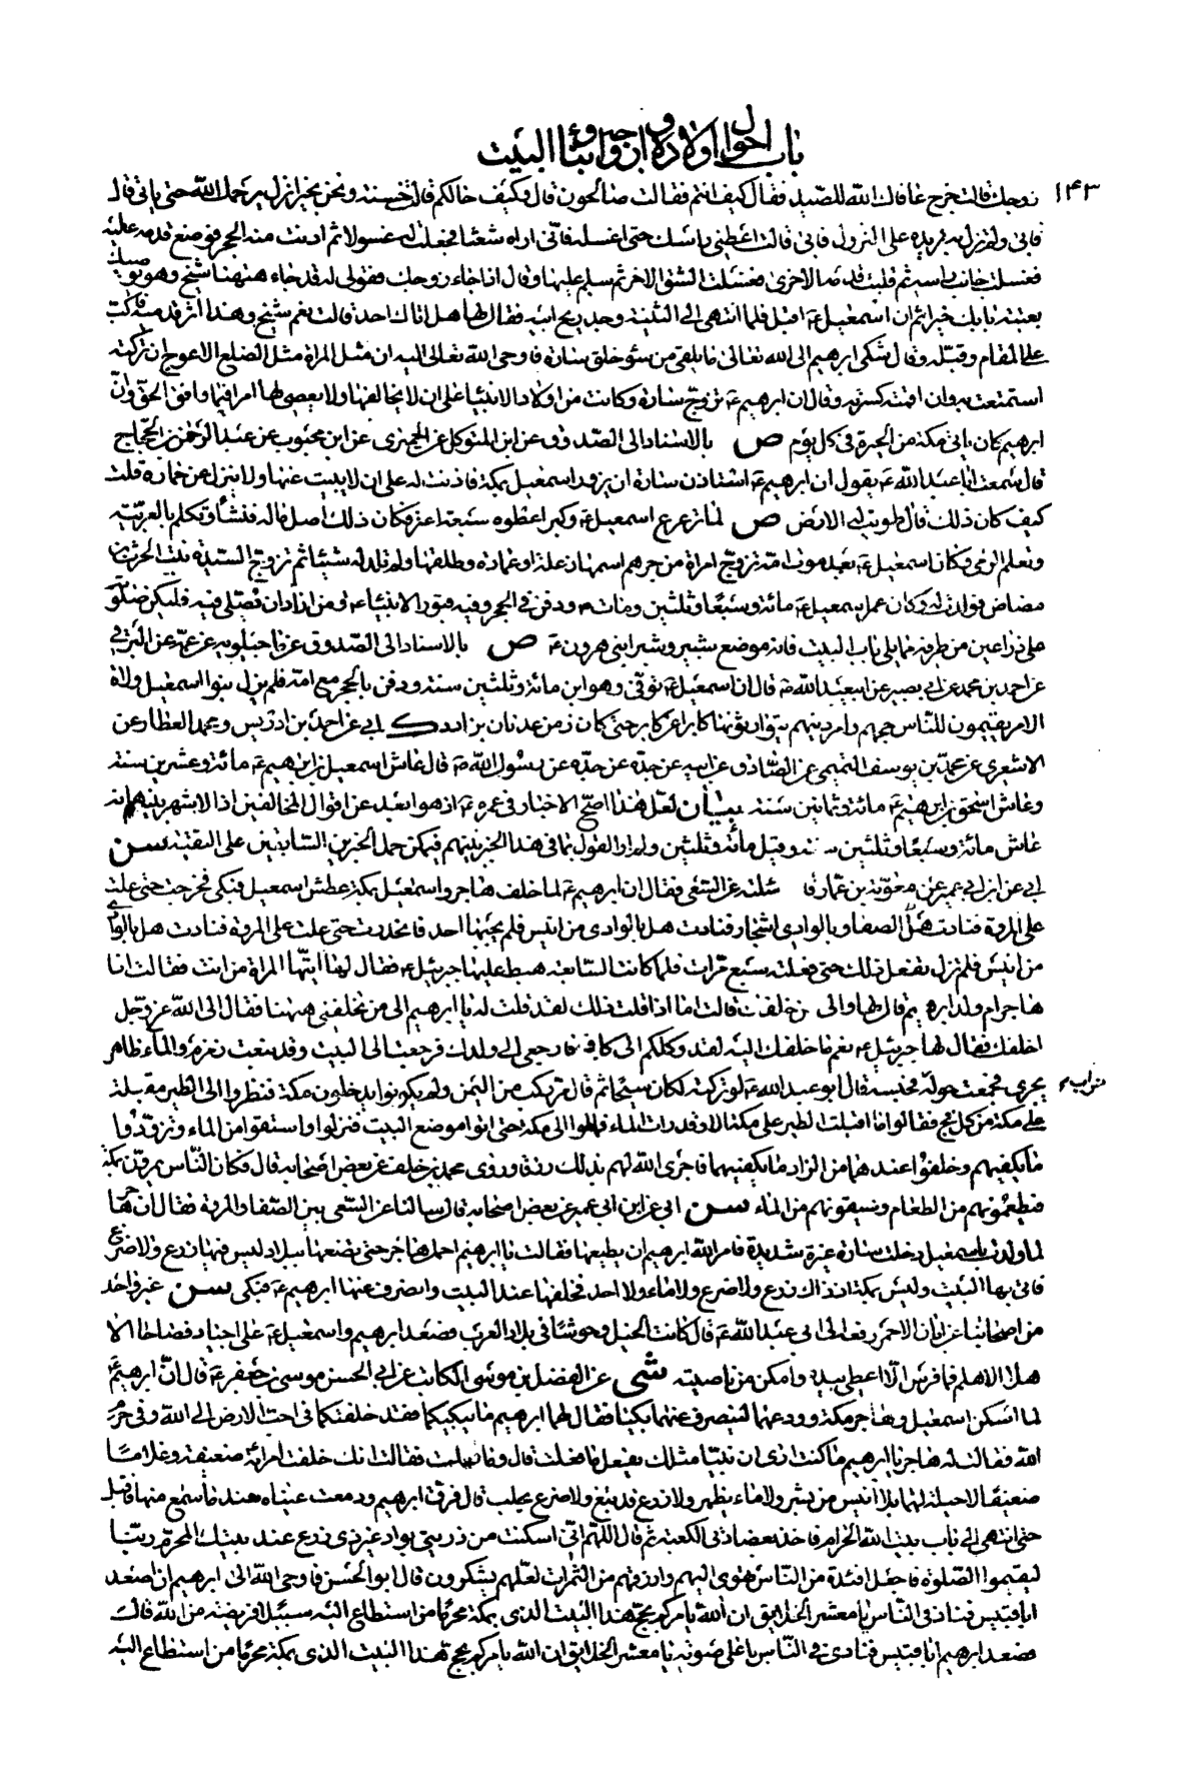 باب احوال اولاده وازواجه وبناء البيت
١٤٣
زوجك قالت خرج عافاك الله للصيد فقال كيف انتم فقالت صالحون قال وكيف حالكم قالت حسنة ونحن بخير انزل يرحمك الله حتى ياتى قال
فابى ولم تزل به تريده على النزول فابى قالت اعطنى راسك حتى اغسله فانى اراه شعثا فجعلت له غسولا ثم ادنت منه الحجر فوضع قدمه عليه
فغسلت جانب راسه ثم قلبت قدمه الاخرى فغسلت الشق الاخر ثم سلم عليها وقال اذا جاء زوجك فقولى له قد جاء ههنا شيخ وهو يوصيك
بعتبة بابك خيرا ثم ان اسمعيل ع اقبل فلما انتهى الى الثنية وجد ريح ابيه فقال لها هل اتاك احد قالت نعم شيخ وهذا اثر قدميه فاكب
على المقام وقبله وقال شكى ابرهيم الى الله تعالى ما يلقى من سوء خلق سارة فاوحى الله تعالى اليه ان مثل المراة مثل الضلع الاعوج ان تركته
استمتعت به وان اقمته كسرته وقال ان ابرهيم ع تزوج سارة وكانت من اولاد الانبياء على ان لا يخالفها ولا يعصى لها امرا فيما وافق الحق وان
ابرهيم كان ياتى مكة من الحيرة فى كل يوم ص بالاسناد الى الصدوق عن ابن المتوكل عن الحميرى عن ابن محبوب عن عبد الرحمن بن الحجاج
قال سمعت ابا عبد الله ع يقول ان ابرهيم ع استاذن سارة ان يزور اسمعيل بمكة فاذنت له على ان لا يبيت عنها ولا ينزل عن حماره قلت
كيف كان ذلك قال طويت له الارض ص لما ترعرع اسمعيل ع وكبر اعطوه سبعة اعنز فكان ذلك اصل ماله فنشا وتكلم بالعربية
وتعلم الرمى وكان اسمعيل ع بعد موت امه تزوج امراة من جرهم اسمها زعلة او عمادة وطلقها ولم تلد له شيئا ثم تزوج السيدة بنت الحرث بن
مضاض فولدت له وكان عمر اسمعيل ع مائة وسبعا وثلثين ومات ع ودفن فى الحجر وفيه قبور الانبياء ع ومن اراد ان يصلى فيه فليكن صلوته
على ذراعين من طرفه مما يلى باب البيت فانه موضع شبير وشبر ابنى هرون ع ص بالاسناد الى الصدوق عن ماجيلويه عن عمه عن البرقى
عن احمد بن محمد عن ابى بصير عن ابى عبد الله ع قال ان اسمعيل ع توفى وهو ابن مائة وثلثين سنة ودفن بالحجر مع امه فلم يزل بنو اسمعيل ولاة
الامر يقيمون للناس حجهم وامر دينهم يتوارثونها كابرا عن كابر حتى كان زمن عدنان بن ادد ك ابى عن احمد بن ادريس ومحمد العطار عن
الاشعرى عن محمد بن يوسف التميمى عن الصادق عن ابيه عن جده عن رسول الله ص قال عاش اسمعيل بن ابرهيم ع مائة وعشرين سنة
وعاش اسحق بن ابرهيم ع مائة وثمانين سنة بيان لعل هذا اصح الاخبار فى عمره ع اذ هو ابعد عن اقوال المخالفين اذ الاشهر بينهم انه
عاش مائة وسبعا وثلثين سنة وقيل مائة وثلثين ولم ار القول بما فى هذا الخبر بينهم فيمكن حمل الخبرين السابقين على التقية سن
ابى عن ابن ابى عمير عن معوية بن عمار قال سئلته عن السعى فقال ان ابرهيم ع لما خلف هاجر واسمعيل بمكة عطش اسمعيل فبكى فخرجت حتى علت
على الصفا وبالوادى اشجار فنادت هل بالوادى من انيس فلم يجبها احد فانحدرت حتى علت على المروة فنادت هل بالوادى
من انيس فلم تزل تفعل ذلك حتى فعلته سبع مرات فلما كانت السابعة هبط عليها جبرئيل ع فقال لها ايتها المراة من انت فقالت انا
هاجر ام ولد ابرهيم قال لها والى من خلفك قالت اما اذا قلت ذلك لقد قلت له يا ابرهيم الى من تخلفنى ههنا فقال الى الله عز وجل
اخلفك فقال لها جبرئيل ع نعم ما خلفك اليه لقد وكلكم الى كاف فارجعى الى ولدك فرجعت الى البيت وقد نبعت زمزم والماء ظاهر
يجرى فجمعت حوله فحبسه قال ابو عبد الله ع لو تركته لكان سيحا ثم قال مر ركب من اليمن ولم يكونوا يدخلون مكة فنظروا الى الطير مقبلة
تراب
على مكة من كل فج فقالوا ما اقبلت الطير على مكة الا وقد رات الماء فمالوا الى مكة حتى اتوا موضع البيت فنزلوا واستقوا من الماء وتزودوا
ما يكفيهم وخلفوا عندهما من الزاد ما يكفيهما فاجرى الله لهم بذلك رزقا وروى محمد بن خلف عن بعض اصحابه قال فكان الناس يمرون بمكة
فيطعمونهم من الطعام ويسقونهم من الماء سن ابى عن ابن ابى عمير عن بعض اصحابه قال سالنا عن السعى بين الصفا والمروة فقال ان هاجر
لما ولدت باسمعيل دخلت سارة غيرة شديدة فامر الله ابرهيم ان يطيعها فقالت يا ابرهيم احمل هاجر حتى تضعها ببلاد ليس فيها زرع ولا ضرع
فاتى بها البيت وليس بمكة اذ ذاك زرع ولا ضرع ولا ماء ولا احد فخلفها عند البيت وانصرف عنها ابرهيم ع فبكى سن غير واحد
من اصحابنا عن ابان الاحمر رفعه الى ابى عبد الله ع قال كانت الخيل وحوشا فى بلاد العرب فصعد ابرهيم واسمعيل ع على اجياد فصاحا الا
هلا الا هلم فما فرس الا اعطى بيده وامكن من ناصيته شى عن الفضل بن موسى الكاتب عن ابى الحسن موسى بن جعفر ع قال ان ابرهيم ع
لما اسكن اسمعيل وهاجر مكة وودعهما لينصرف عنهما بكيا فقال لهما ابرهيم ما يبكيكما فقد خلفتكما فى احب الارض الى الله وفى حرم
الله فقالت له هاجر يا ابرهيم ما كنت ارى ان نبيا مثلك يفعل ما فعلت قال وما فعلت فقالت انك خلفت امراة ضعيفة وغلاما
ضعيفا لا حيلة لهما بلا انيس من بشر ولا ماء يظهر ولا زرع قد بلغ ولا ضرع يحلب قال فرق ابرهيم ودمعت عيناه عند ما سمع منها فاقبل
حتى انتهى الى باب بيت الله الحرام فاخذ بعضادتى الكعبة ثم قال اللهم انى اسكنت من ذريتى بواد غير ذى زرع عند بيتك المحرم ربنا
ليقيموا الصلوة فاجعل افئدة من الناس تهوى اليهم وارزقهم من الثمرات لعلهم يشكرون قال ابو الحسن فاوحى الله الى ابرهيم ان اصعد
ابا قبيس فناد فى الناس يا معشر الخلايق ان الله يامركم بحج هذا البيت الذى بمكة محرما من استطاع اليه سبيلا فريضة من الله قال
فصعد ابرهيم ابا قبيس فنادى فى الناس باعلى صوته يا معشر الخلايق ان الله يامركم بحج هذا البيت الذى بمكة محرما من استطاع اليه